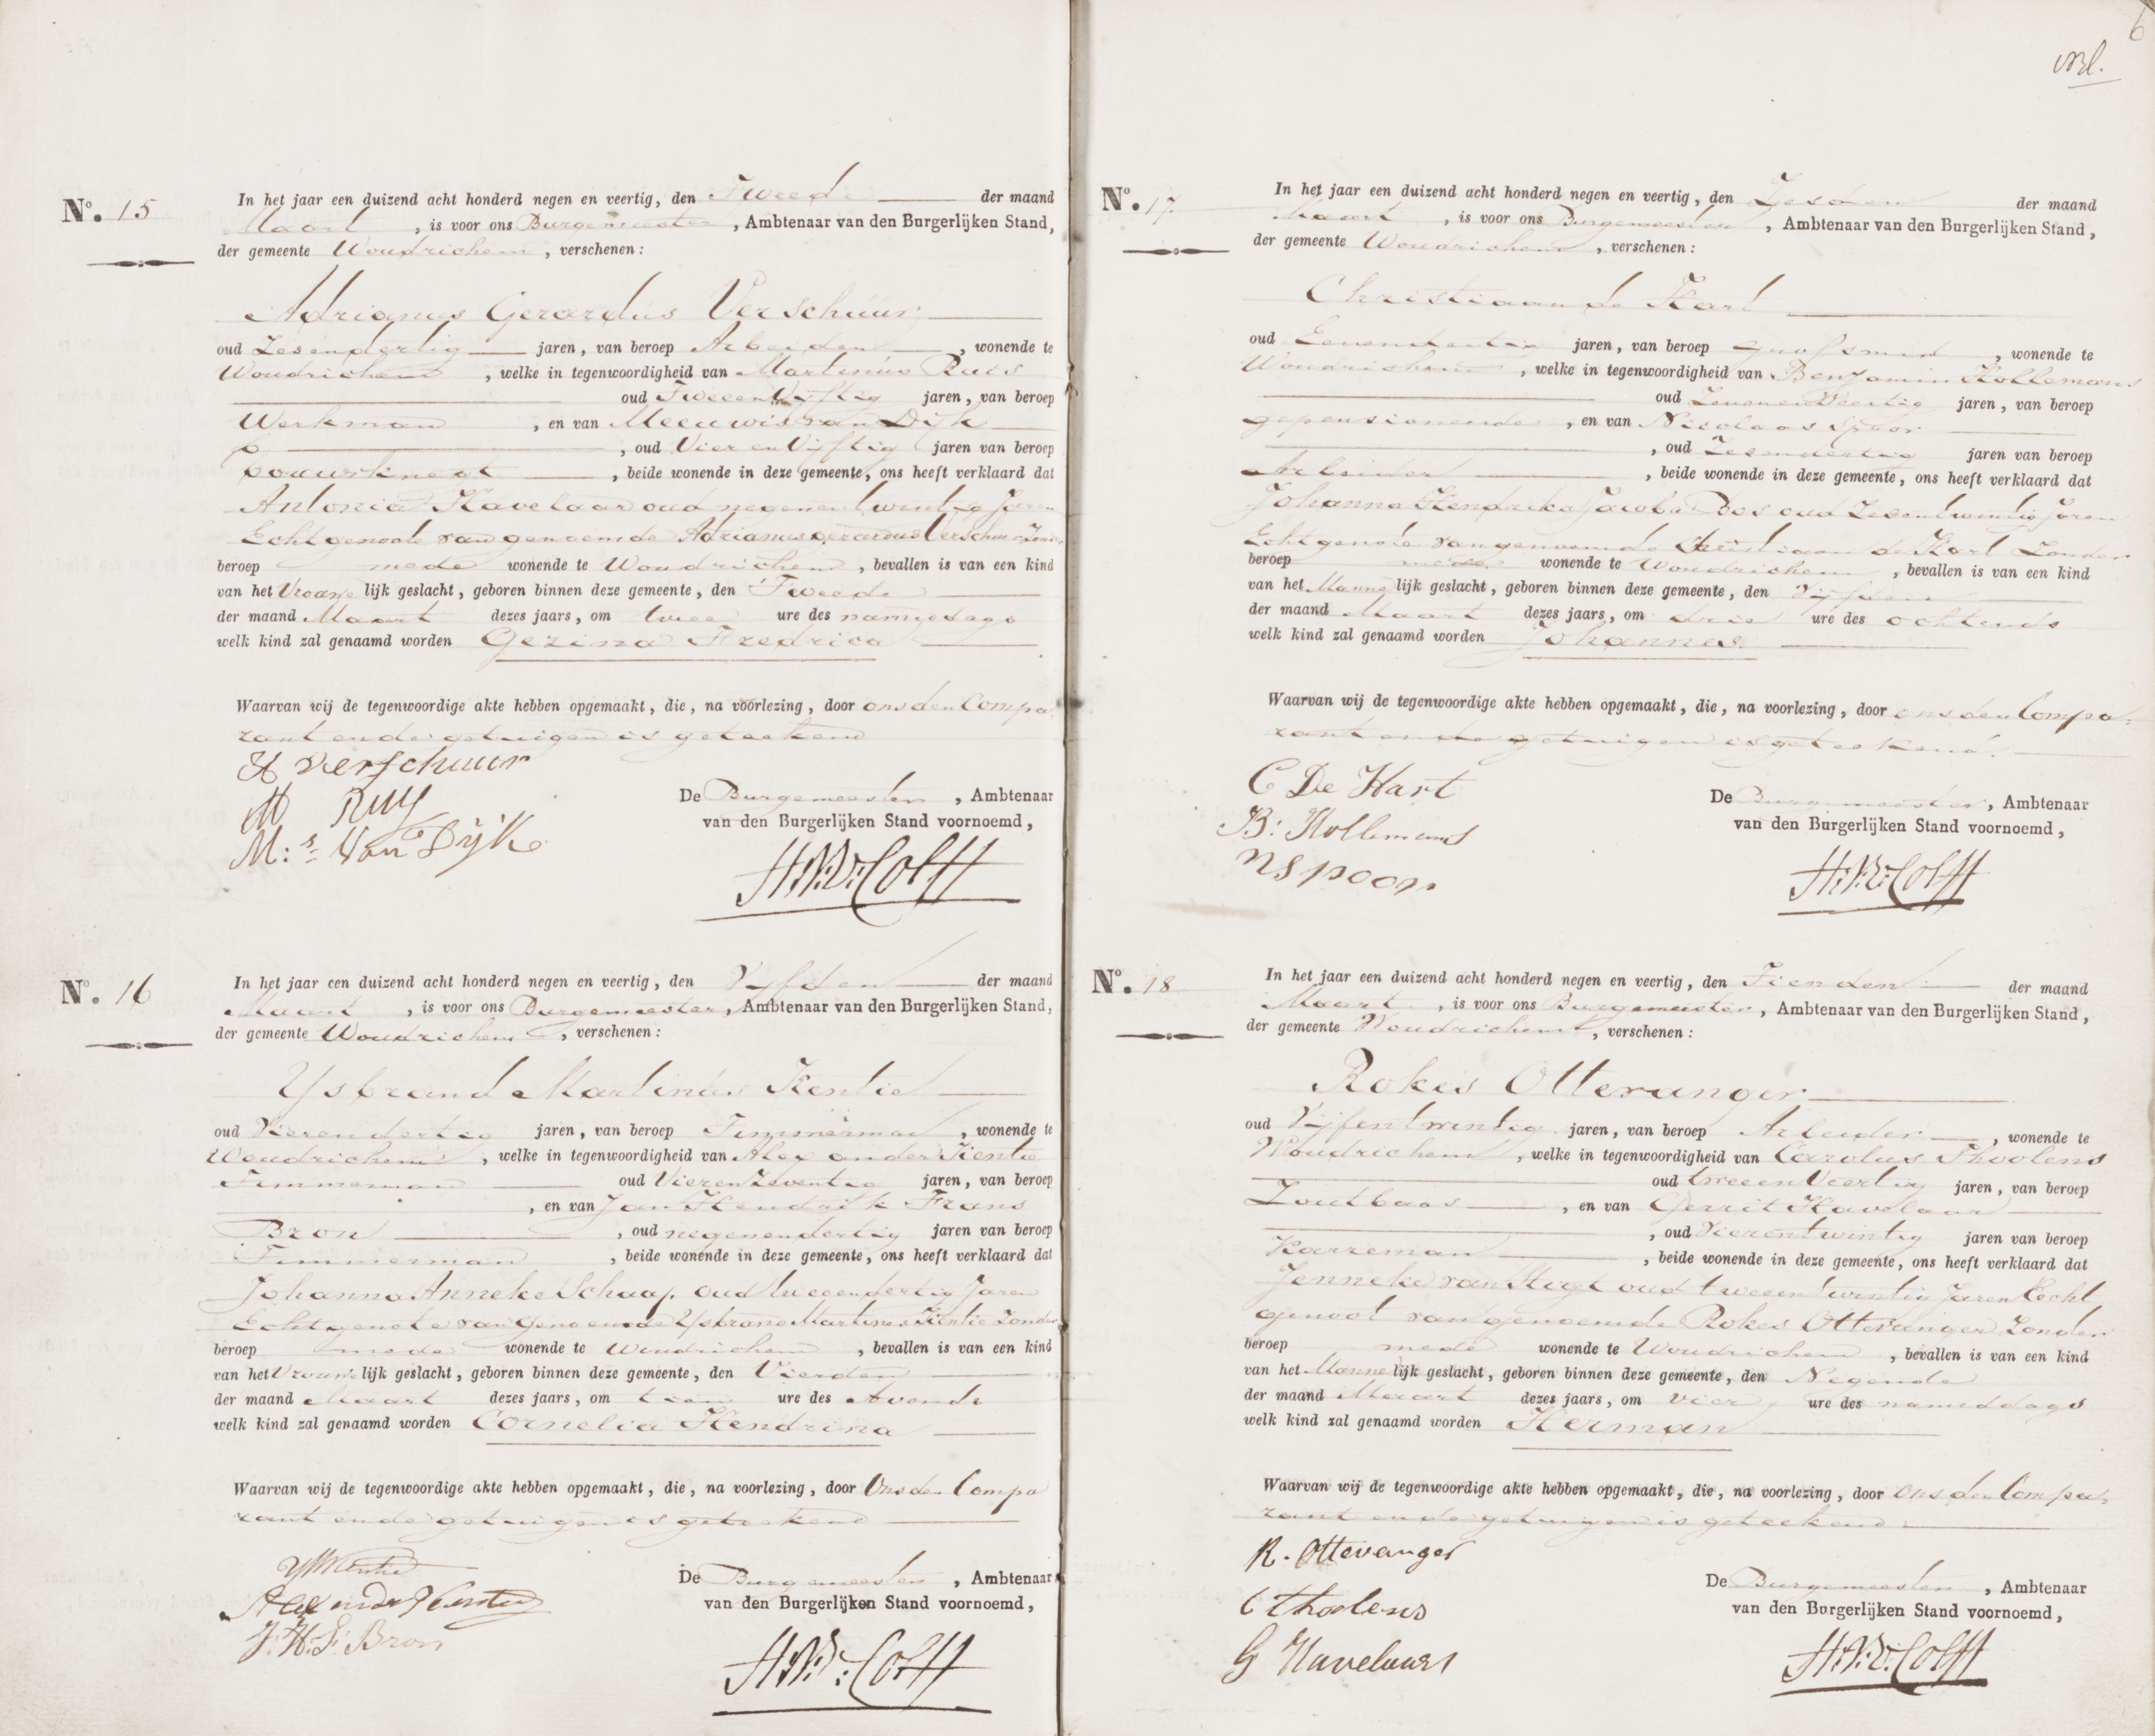 N.º 15
In het jaar een duizend acht honderd negen en veertig, den Tweede der maand
Maart, is voor ons Burgemeester, Ambtenaar van den Burgerlijken Stand,
der gemeente Woudrichem, verschenen:
Adrianus Gerardus Verschuur
oud Zesendertig jaren, van beroep Arbeider, wonende te
Woudrichem, welke in tegenwoordigheid van Martinus Ruis
oud Tweeenvijftig jaren, van beroep
Werkman, en van Meeuwis van Dijk
, oud Vier en Vijftig jaren van beroep
bouwknegt, beide wonende in deze gemeente, ons heeft verklaard dat
Antonia Havelaar oud negenentwintig Jaren
Echtgenoote van genoemde Adrianus Gerardus Verschuur Zonder
beroep mede wonende te Woudrichem, bevallen is van een kind
van het Vrouwe lijk geslacht, geboren binnen deze gemeente, den Tweede
der maand Maart dezes jaars, om twee ure des namiddags
welk kind zal genaamd worden Gezina Fredrica
Waarvan wij de tegenwoordige akte hebben opgemaakt, die, na voorlezing, door ons den Compa
rant en de getuigen is geteekend
A Verschuur
M Ruy
M:s Van Dijk
De Burgemeester, Ambtenaar
van den Burgerlijken Stand voornoemd,
N.º 16
In het jaar een duizend acht honderd negen en veertig, den Vyfden der maand
Maart, is voor ons Burgemeester, Ambtenaar van den Burgerlijken Stand,
der gemeente Woudrichem, verschenen:
Ysbrand Martinus Kentie
oud Vierendertig jaren, van beroep Timmerman, wonende te
Woudrichem, welke in tegenwoordigheid van Alexander Kentie
Timmerman oud Vieren Zeventig jaren, van beroep
, en van Jan Hendrik Frans
Bron, oud negenendertig jaren van beroep
Timmerman, beide wonende in deze gemeente, ons heeft verklaard dat
Johanna Anneke Schaap oud tweeendertig Jaren
Echtgenote van genoemde Ysbrand Martinus Kentie Zonder
beroep mede wonende te Woudrichem, bevallen is van een kind
van het Vrouwe lijk geslacht, geboren binnen deze gemeente, den Vierden
der maand Maart dezes jaars, om tien ure des Avonds
welk kind zal genaamd worden Cornelia Hendrina
Waarvan wij de tegenwoordige akte hebben opgemaakt, die, na voorlezing, door Ons den Compa
rant en de getuigen is geteekend
YMKentie
Alexander Kentie
J. H. F. Bron
De Burgemeester, Ambtenaar
van den Burgerlijken Stand voornoemd,
6
N.º 17.
In het jaar een duizend acht honderd negen en veertig, den Zesden der maand
Maart, is voor ons Burgemeester, Ambtenaar van den Burgerlijken Stand,
der gemeente Woudrichem, verschenen:
Christiaan de Hart
oud Eenendertig jaren, van beroep Grofsmid, wonende te
Woudrichem, welke in tegenwoordigheid van Benjamin Hollemans
oud Zevenen Veertig jaren, van beroep
gepensioneerde, en van Nicolaas Spoor
, oud Zesendertig jaren van beroep
Arbeider, beide wonende in deze gemeente, ons heeft verklaard dat
Johanna Hendrika Jacoba Bos oud Zesentwintig Jaren
Echtgenote van genoemde Christiaan de Hart Zonder
beroep mede wonende te Woudrichem, bevallen is van een kind
van het Manne lijk geslacht, geboren binnen deze gemeente, den Vijfden
der maand Maart dezes jaars, om drie ure des ochtends
welk kind zal genaamd worden Johannes.
Waarvan wij de tegenwoordige akte hebben opgemaakt, die, na voorlezing, door ons den Compa
rant en de getuigen is geteekend.
C De Hart
B: Hollemans
N Spoor
De Burgemeester, Ambtenaar
van den Burgerlijken Stand voornoemd,
N.º 18
In het jaar een duizend acht honderd negen en veertig, den Tienden der maand
Maart, is voor ons Burgemeester, Ambtenaar van den Burgerlijken Stand,
der gemeente Woudrichem, verschenen:
Rokes Ottevanger
oud Vijfentwintig jaren, van beroep Arbeider, wonende te
Woudrichem, welke in tegenwoordigheid van Carolus Thoolens
oud tweeen Veertig jaren, van beroep
Zoutbaas, en van Gerrit Havelaar
, oud Vierentwintig jaren van beroep
Karreman, beide wonende in deze gemeente, ons heeft verklaard dat
Jenneke van Stigt oud tweeentwintig Jaren Echt
genoot van genoemde Rokes Ottevanger Zonder
beroep mede wonende te Woudrichem, bevallen is van een kind
van het Manne lijk geslacht, geboren binnen deze gemeente, den Negende
der maand Maart dezes jaars, om vier ure des namiddags
welk kind zal genaamd worden Herman
Waarvan wij de tegenwoordige akte hebben opgemaakt, die, na voorlezing, door ons den Compa
rant en de getuigen is geteekend
R. Ottevanger
C Thoolens
G Havelaar
De Burgemeester, Ambtenaar
van den Burgerlijken Stand voornoemd,